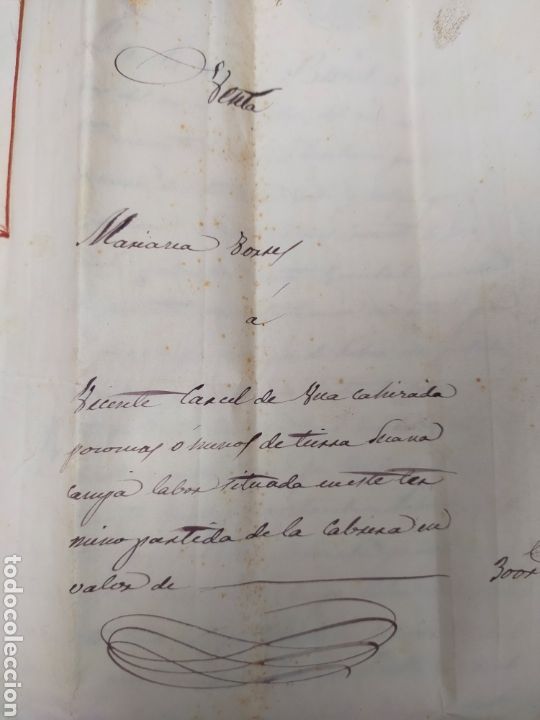 Venta
Mariana Torres
á
Vicente Carcel de Una cahizada
poco mas ó menos de tierra Secana
campa labor situada en este ter
mino partida de la Cabrera en
valor de
todocoleccion